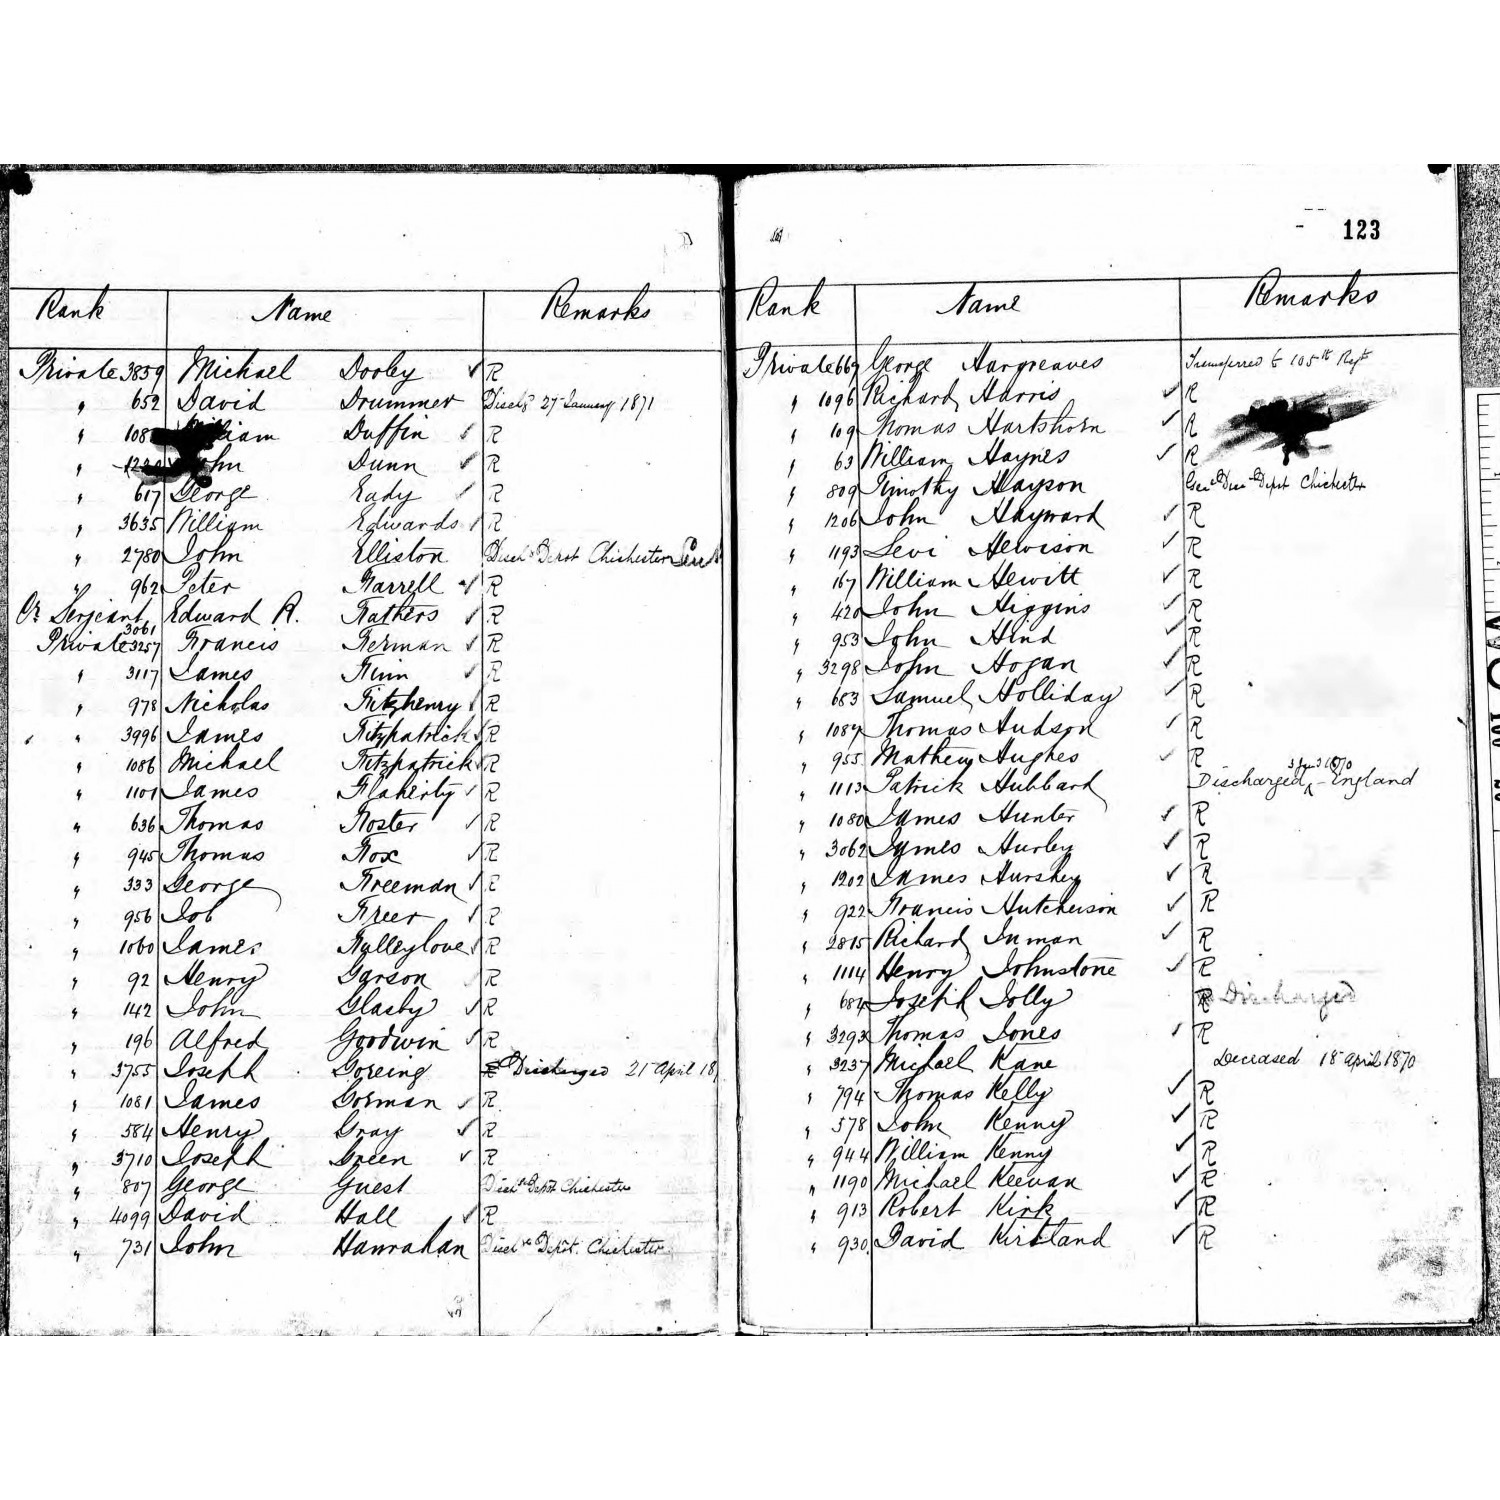 Rank Name Remarks
Private 3859 Michael Dooley ✓ R
" 652 David Drummer Disch'd 27 January 1871
" 108 William Duffin ✓ R
" John Dunn ✓ R
" 617 George Eady ✓ R
" 3635 William Edwards ✓ R
" 2780 John Elliston Disch'd Depot Chichester
" 962 Peter Farrell ✓ R
Or Serjeant 3061 Edward R. Fathers ✓ R
Private 3257 Francis Ferman ✓ R
" 3117 James Finn ✓ R
" 978 Nicholas Fitzhenry ✓ R
" 3996 James Fitzpatrick ✓ R
" 1086 Michael Fitzpatrick ✓ R
" 1101 James Flaherty ✓ R
" 636 Thomas Foster ✓ R
" 945 Thomas Fox ✓ R
" 333 George Freeman ✓ R
" 956 Job Freer ✓ R
" 1060 James Fulleylove ✓ R
" 92 Henry Garson ✓ R
" 142 John Glasby ✓ R
" 196 Alfred Goodwin ✓ R
" 3755 Joseph Goreing Discharged 21 April 18
" 1081 James Gorman ✓ R
" 584 Henry Gray ✓ R
" 3710 Joseph Green ✓ R
" 807 George Guest Disch'd Depot Chichester
" 4099 David Hall ✓ R
" 731 John Hanrahan Disch'd Depot Chichester
123
Rank Name Remarks
Private 669 George Hargreaves Transferred to 105th Regt
" 1096 Richard Harris ✓ R
" 109 Thomas Hartshorn ✓ R
" 63 William Haynes ✓ R
" 809 Timothy Hayson Depot Chichester
" 1206 John Hayward ✓ R
" 1193 Levi Hewison ✓ R
" 167 William Hewitt ✓ R
" 420 John Higgins ✓ R
" 953 John Hind ✓ R
" 3298 John Hogan ✓ R
" 653 Samuel Holliday ✓ R
" 1087 Thomas Hudson ✓ R
" 955 Mathew Hughes ✓ R
" 1113 Patrick Hubbard Discharged England
" 1080 James Hunter ✓ R
" 3062 James Hurley ✓ R
" 1202 James Hurshey ✓ R
" 922 Francis Hutcheison ✓ R
" 2815 Richard Inman ✓ R
" 1114 Henry Johnstone ✓ R
" 684 Joseph Jolly R Discharged
" 3293 Thomas Jones ✓ R
" 3237 Michael Kane Deceased 18 April 1870
" 794 Thomas Kelly ✓ R
" 578 John Kenny ✓ R
" 944 William Kenny ✓ R
" 1190 Michael Keevan ✓ R
" 913 Robert Kirk ✓ R
" 930 David Kirkland ✓ R